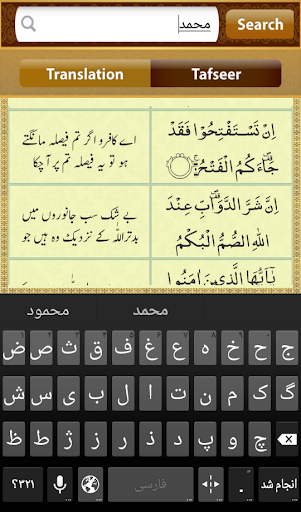 محمد
Search
Translation
Tafseer
اِنْ تَسْتَفْتِحُوْا فَقَدْ
جَآءَكُمُ الْفَتْحُ ۚ
اے کافرو اگر تم فیصلہ مانگتے
ہو تو یہ فیصلہ تم پر آچکا
اِنَّ شَرَّ الدَّوَآبِّ عِنْدَ
اللّٰهِ الصُّمُّ الْبُكْمُ
بے شک سب جانوروں میں
بدتر اللہ کے نزدیک وہ ہیں جو
يٰٓاَيُّهَا الَّذِيْنَ اٰمَنُوْا
محمد محمود
ج ح خ ه ع غ ف ق ث ص ض
گ ک م ن ت ا ل ب ی س ش
چ پ و د ذ ر ز ژ ط ظ
انجام شد . فارسی ۳۲۱؟